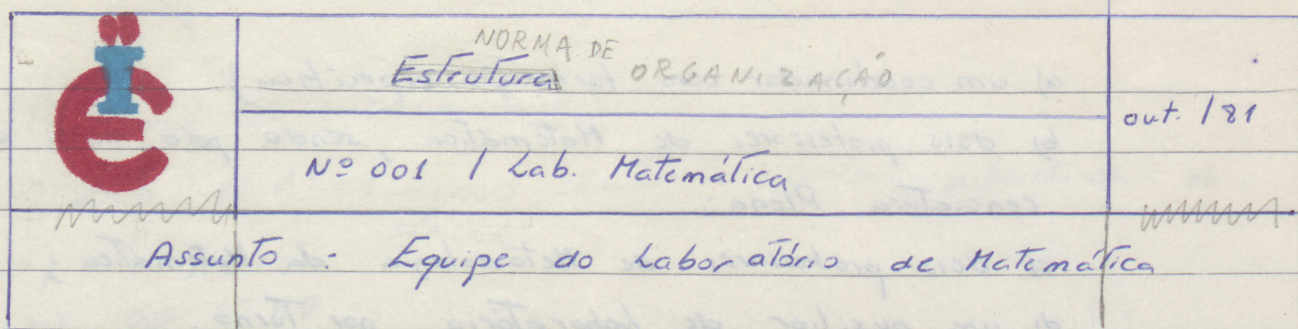 NORMA DE
Estrutura ORGANIZAÇÃO
out. / 81
Nº 001 / Lab. Matemática
Assunto : Equipe do Laboratório de Matemática